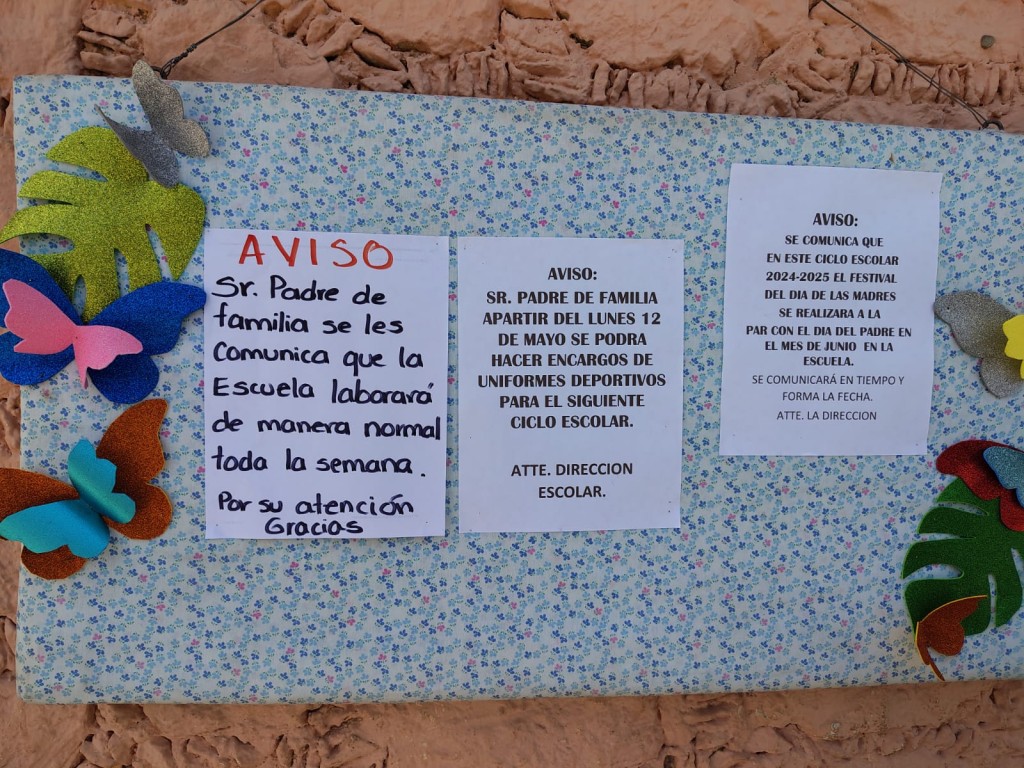 AVISO
Sr. Padre de
familia se les
Comunica que la
Escuela laborará
de manera normal
toda la semana.
Por su atención
Gracias
AVISO:
SR. PADRE DE FAMILIA
APARTIR DEL LUNES 12
DE MAYO SE PODRA
HACER ENCARGOS DE
UNIFORMES DEPORTIVOS
PARA EL SIGUIENTE
CICLO ESCOLAR.
ATTE. DIRECCION
ESCOLAR.
AVISO:
SE COMUNICA QUE
EN ESTE CICLO ESCOLAR
2024-2025 EL FESTIVAL
DEL DIA DE LAS MADRES
SE REALIZARA A LA
PAR CON EL DIA DEL PADRE EN
EL MES DE JUNIO EN LA
ESCUELA.
SE COMUNICARÁ EN TIEMPO Y
FORMA LA FECHA.
ATTE. LA DIRECCION